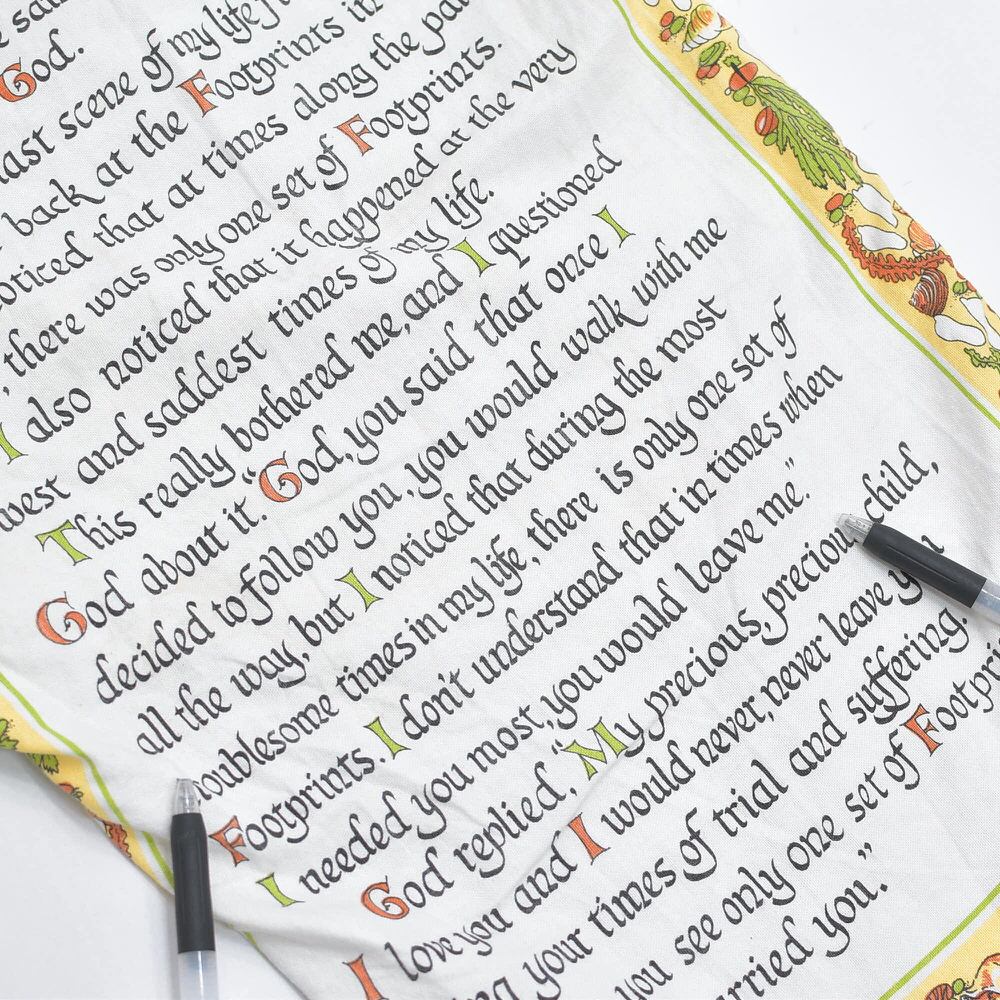 e sai
God.
last scene of my life fl
back at the Footprints in
oticed that at times along the pat
, there was only one set of Footprints.
I also noticed that it happened at the very
west and saddest times of my life.
This really bothered me, and I questioned
God about it. "God, you said that once I
decided to follow you, you would walk with me
all the way, but I noticed that during the most
roublesome times in my life, there is only one set of
Footprints. I don't understand that in times when
I needed you most, you would leave me".
God replied, "My precious, precious child,
I love you and I would never, never leave y
ng your times of trial and suffering.
you see only one set of Footpri
arried you."